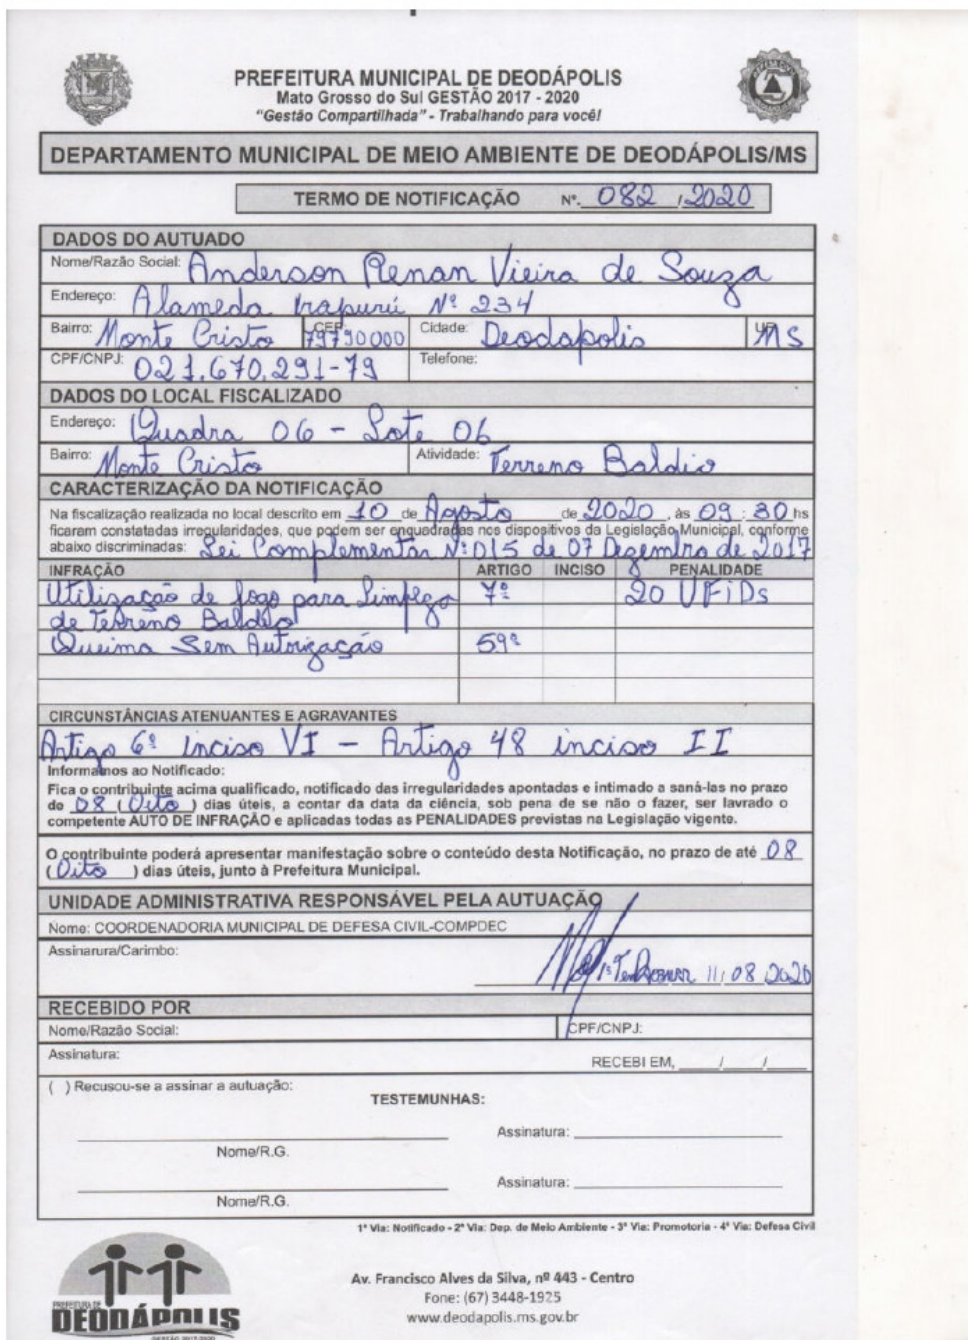 PREFEITURA MUNICIPAL DE DEODÁPOLIS
Mato Grosso do Sul GESTÃO 2017 - 2020
"Gestão Compartilhada" - Trabalhando para você!
DEFESA CIVIL
DEPARTAMENTO MUNICIPAL DE MEIO AMBIENTE DE DEODÁPOLIS/MS
TERMO DE NOTIFICAÇÃO Nº. 082 /2020
DADOS DO AUTUADO
Nome/Razão Social: Anderson Renan Vieira de Souza
Endereço: Alameda Irapurú Nº 234
Bairro: Monte Cristo CEP: 79790000 Cidade: Deodapolis UF MS
CPF/CNPJ: 021.670.291-79 Telefone:
DADOS DO LOCAL FISCALIZADO
Endereço: Quadra 06 - Lote 06
Bairro: Monte Cristo Atividade: Terreno Baldio
CARACTERIZAÇÃO DA NOTIFICAÇÃO
Na fiscalização realizada no local descrito em 10 de Agosto de 2020, às 09 : 30 hs
ficaram constatadas irregularidades, que podem ser enquadradas nos dispositivos da Legislação Municipal, conforme
abaixo discriminadas: Lei Complementar Nº 015 de 07 Dezembro de 2017
INFRAÇÃO ARTIGO INCISO PENALIDADE
Utilização de fogo para Limpeza 7º 20 UFiDs
de Terreno Baldio
Queima Sem Autorização 59º
CIRCUNSTÂNCIAS ATENUANTES E AGRAVANTES
Artigo 6º inciso VI - Artigo 48 inciso II
Informamos ao Notificado:
Fica o contribuinte acima qualificado, notificado das irregularidades apontadas e intimado a saná-las no prazo
de 08 ( Oito ) dias úteis, a contar da data da ciência, sob pena de se não o fazer, ser lavrado o
competente AUTO DE INFRAÇÃO e aplicadas todas as PENALIDADES previstas na Legislação vigente.
O contribuinte poderá apresentar manifestação sobre o conteúdo desta Notificação, no prazo de até 08
( Oito ) dias úteis, junto à Prefeitura Municipal.
UNIDADE ADMINISTRATIVA RESPONSÁVEL PELA AUTUAÇÃO
Nome: COORDENADORIA MUNICIPAL DE DEFESA CIVIL-COMPDEC
Assinarura/Carimbo:
11/08/2020
RECEBIDO POR
Nome/Razão Social: CPF/CNPJ:
Assinatura: RECEBI EM, ____/____/____
( ) Recusou-se a assinar a autuação:
TESTEMUNHAS:
Assinatura:
Nome/R.G.
Assinatura:
Nome/R.G.
1ª Via: Notificado - 2ª Via: Dep. de Meio Ambiente - 3ª Via: Promotoria - 4ª Via: Defesa Civil
PREFEITURA DE
DEODÁPOLIS
Av. Francisco Alves da Silva, nº 443 - Centro
Fone: (67) 3448-1925
www.deodapolis.ms.gov.br